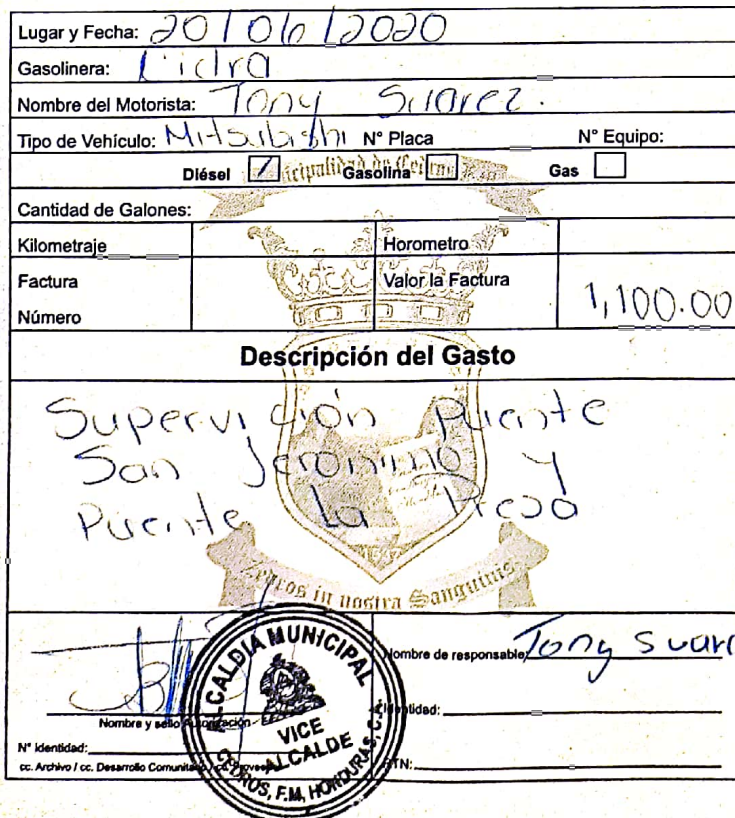 Lugar y Fecha: 20/06/2020
Gasolinera:
Nombre del Motorista: Tony Suarez.
Tipo de Vehículo: Mitsubishi N° Placa N° Equipo:
Diésel Gasolina Gas
Cantidad de Galones:
Kilometraje Horometro
Factura Número Valor la Factura 1,100.00
Descripción del Gasto
Supervición Puente
San Jeronimo y
Puente La Presa
in nostra Sanguinis
Nombre de responsable: Tony Suar
Nombre y sello Autorización
Identidad:
N° Identidad:
cc. Archivo / cc. Desarrollo Comunitario / cc. Proveedor
RTN:
ALCALDIA MUNICIPAL
VICE
ALCALDE
CEDROS, F.M, HONDURAS, C.A.